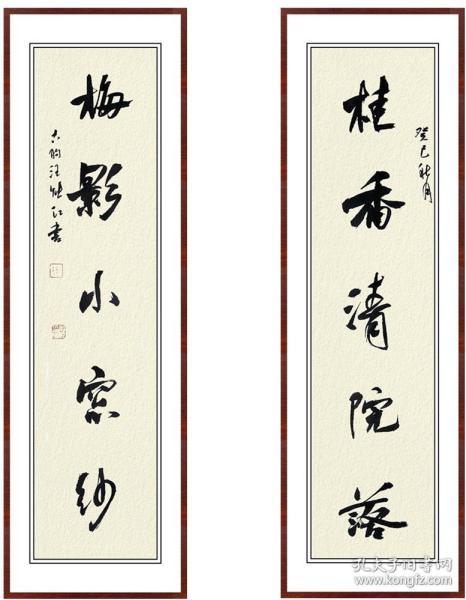 桂香清院落
癸巳秋月
梅影小窗纱
书
孔夫子旧书网
www.kongfz.com